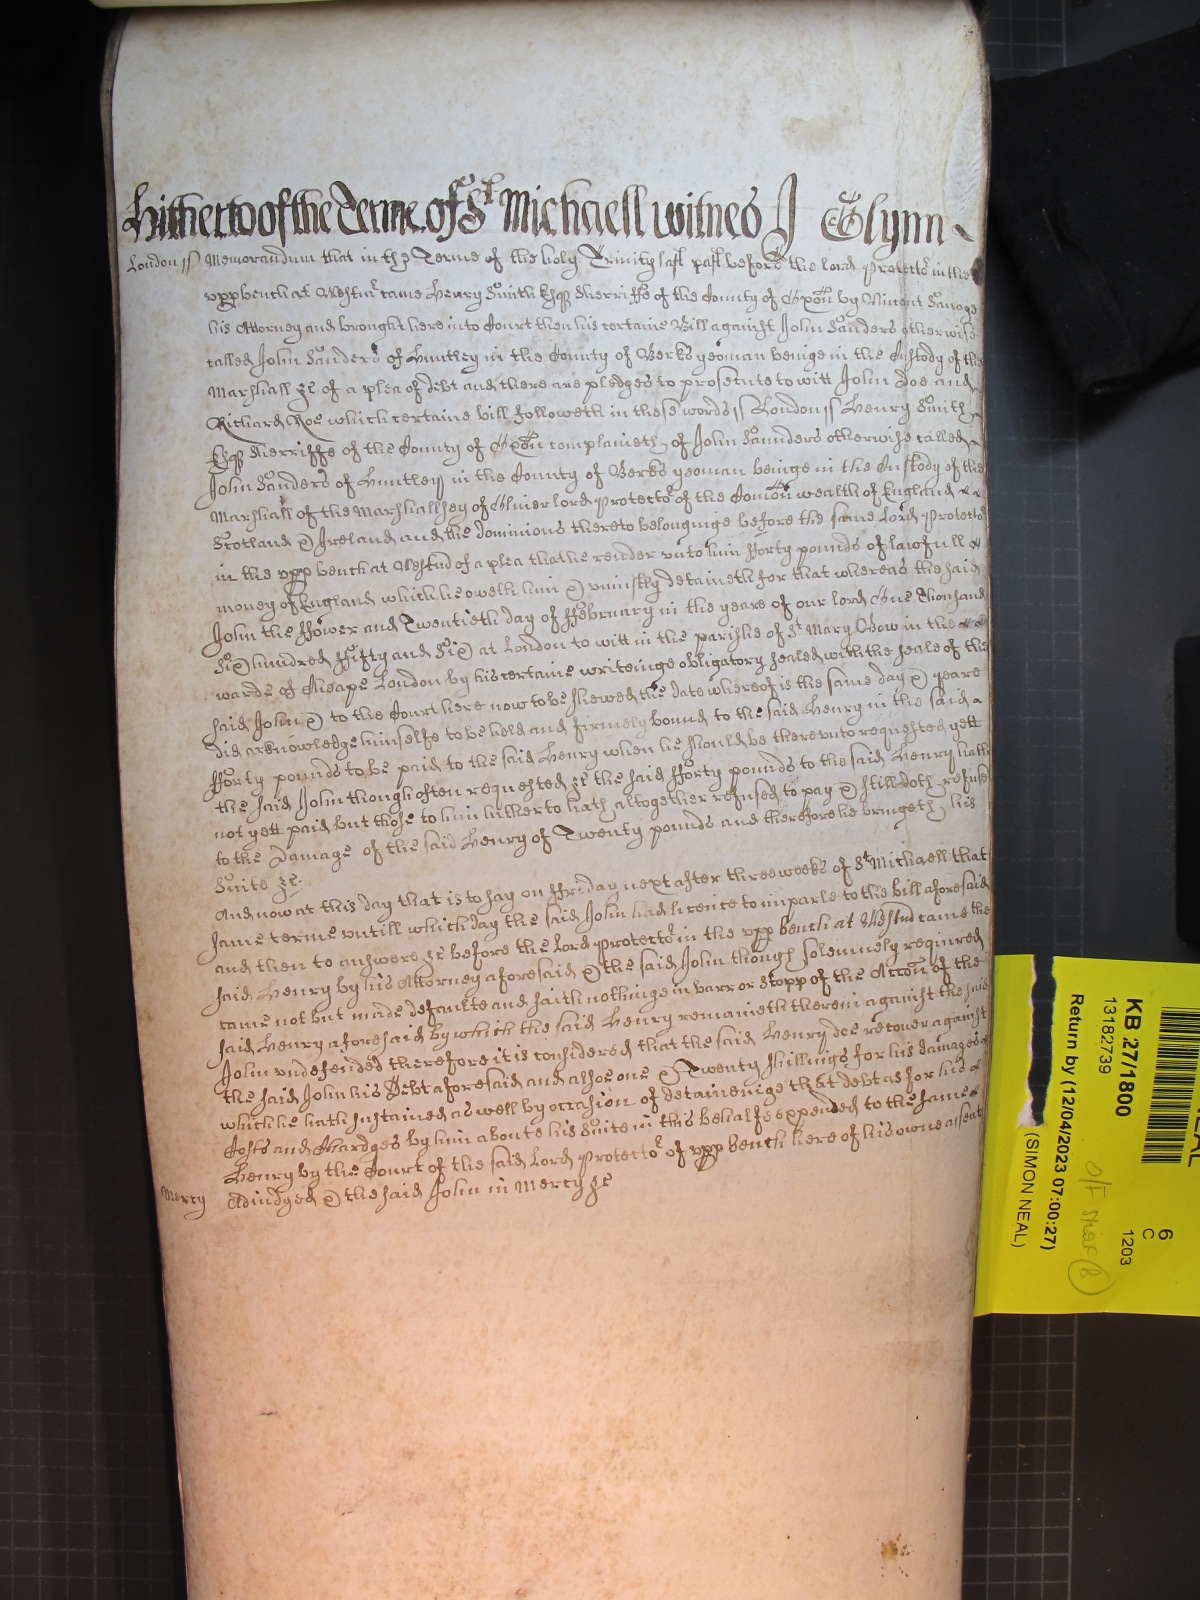 Hitherto of the Terme of St Michaell witnes J Glynn
London ss Memorandum that in the Terme of the holy Trinity last past before the lord Protector in the
upp bench at Westmr came Henry Smith Esqr Sherriffe of the County of Oxon by Vincent Savage
his Attorney and brought here into Court then his certaine Bill against John Sanders otherwise
called John Sanders of Huntley in the County of Berks yeoman beinge in the Custody of the
Marshall &c of a plea of debt and there are pledges to prosecute to witt John Doe and
Richard Roe which certaine bill followeth in these words ss London ss Henry Smith
Esqr Sherriffe of the County of Oxon complaineth of John Saunders otherwise called
John Sanders of Huntley in the County of Berks yeoman beinge in the Custody of the
Marshall of the Marshallsey of Oliver lord Protector of the Comon wealth of England
Scotland & Ireland and the dominions thereto belonginge before the same Lord Protector
in the upp bench at Westm of a plea that he render unto him fforty pounds of lawfull
money of England which he oweth him & uniustly detaineth for that whereas the said
John the ffower and Twentieth day of ffebruary in the yeare of our lord One Thousand
Six hundred ffifty and Six at London to witt in the parishe of St Mary Bow in the
warde of Cheape London by his certaine writeinge obligatory sealed with the seale of the
said John & to the Court here now to be shewed the date whereof is the same day & yeare
did acknowledge himselfe to be held and firmely bound to the said Henry in the said
fforty pounds to be paid to the said Henry when he should be thereunto requested yett
the said John though often requested &c the said fforty pounds to the said Henry hath
not yett paid but those to him hitherto hath altogether refused to pay & still doth refuse
to the Damage of the said Henry of Twenty pounds and therefore he bringeth his
Suite &c.
And now at this day that is to say on ffriday next after three weeks of St Michaell that
same terme untill which day the said John had licence to imparle to the bill aforesaid
and then to answere &c before the Lord Protector in the upp bench at Westm came the
said Henry by his Attorney aforesaid & the said John though solemnely required
came not but made defaulte and saith nothinge in barr or stopp of the Accon of the
said Henry aforesaid by which the said Henry remaineth therein against the said
John undefended therefore it is considered that the said Henry doe recover against
the said John his Debt aforesaid and alsoe one & Twenty shillings for his damages
which he hath sustained as well by occasion of detaineinge that debt as for his
Costs and Chardges by him aboute his Suite in this behalfe expended to the same
Henry by the Court of the said Lord Protector of upp bench here of his owne assent
Mercy Adiudged & the said John in Mercy &c
KB 27/1800
13182739
Return by (12/04/2023 07:00:27)
(SIMON NEAL)
6
C
1203